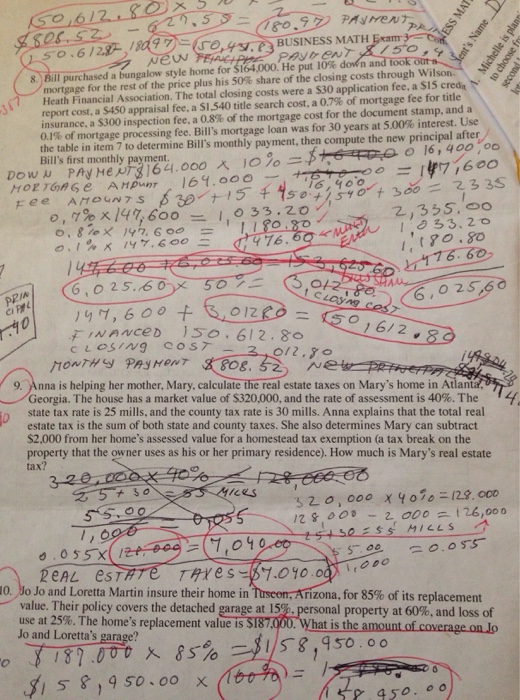 150,612.80 X
$808.52 - 627.55 = 180.97 PAYMENT
150.612.80 - 180.97 = 150,431.83 BUSINESS MATH Exam 3
NEW PRINCIPAL PAYMENT $150,4
8. Bill purchased a bungalow style home for $164,000. He put 10% down and took out a
mortgage for the rest of the price plus his 50% share of the closing costs through Wilson-
Heath Financial Association. The total closing costs were a $30 application fee, a $15 credit
report cost, a $450 appraisal fee, a $1,540 title search cost, a 0.7% of mortgage fee for title
insurance, a $300 inspection fee, a 0.8% of the mortgage cost for the document stamp, and a
0.1% of mortgage processing fee. Bill's mortgage loan was for 30 years at 5.00% interest. Use
the table in item 7 to determine Bill's monthly payment, then compute the new principal after
Bill's first monthly payment.
DOWN PAYMENT $164.000 X 10% = $ 16,400.00
MORTGAGE AMOUNT 164.000 - 16,400 = 147,600
Fee AMOUNTS $30 + 15 + 450 + 1,540 + 300 = 2335
0,7% X 147,600 = 1,033.20
0.8% X 147.600 = 1,180.80
0.1% X 147.600 = 1,476.60
2,335,00
1,033.20
1,180.80
1,476.60
147,600 + 6,025.60 = 153,625.60
6,025.60 X 50% = 3,012,80 CLOSING COST
6,025,60
147,600 + 3,01280 = 150,612.80
FINANCED 150.612.80
CLOSING COST - 3,012.80
MONTHLY PAYMENT $808.52 NEW PRINCIPAL
9. Anna is helping her mother, Mary, calculate the real estate taxes on Mary's home in Atlanta,
Georgia. The house has a market value of $320,000, and the rate of assessment is 40%. The
state tax rate is 25 mills, and the county tax rate is 30 mills. Anna explains that the total real
estate tax is the sum of both state and county taxes. She also determines Mary can subtract
$2,000 from her home's assessed value for a homestead tax exemption (a tax break on the
property that the owner uses as his or her primary residence). How much is Mary's real estate
tax?
320,000 X 40% = 128,000.00
25 + 30 = 55 MILLS
320,000 X 40% = 128.000
55.00
1,000
0,055
128,000 - 2 000 = 126,000
25 + 30 = 55 MILLS
0.055 X 128,000 = 7,040.00
55.00
1,000
= 0.055
REAL ESTATE TAXES = $7.040.00
10. Jo Jo and Loretta Martin insure their home in Tuscon, Arizona, for 85% of its replacement
value. Their policy covers the detached garage at 15%, personal property at 60%, and loss of
use at 25%. The home's replacement value is $187,000. What is the amount of coverage on Jo
Jo and Loretta's garage?
$187.000 X 85% = $158,950.00
$158,950.00 X 100% =
158 950.00